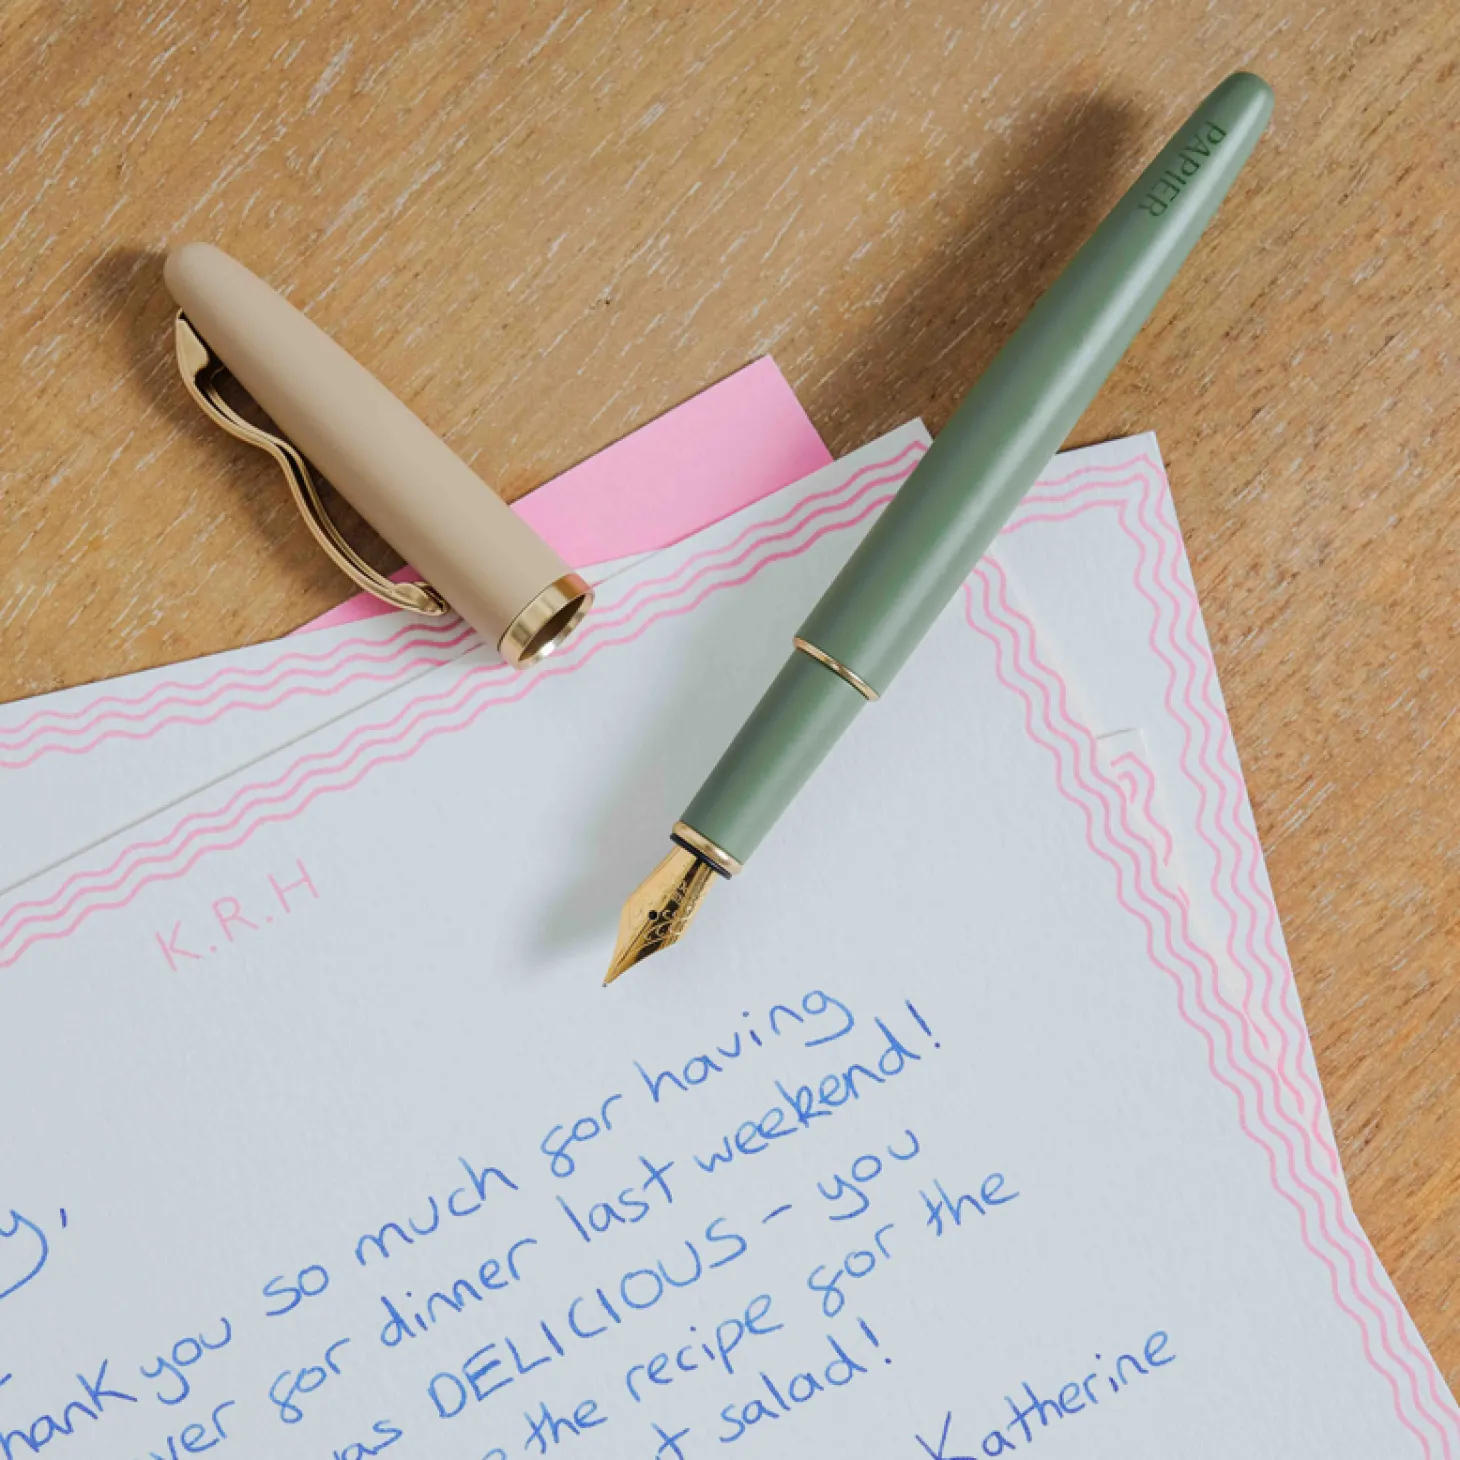 PAPIER
K.R.H
y,
hank you so much for having
ver for dinner last weekend!
as DELICIOUS - you
the recipe for the
t salad!
Katherine